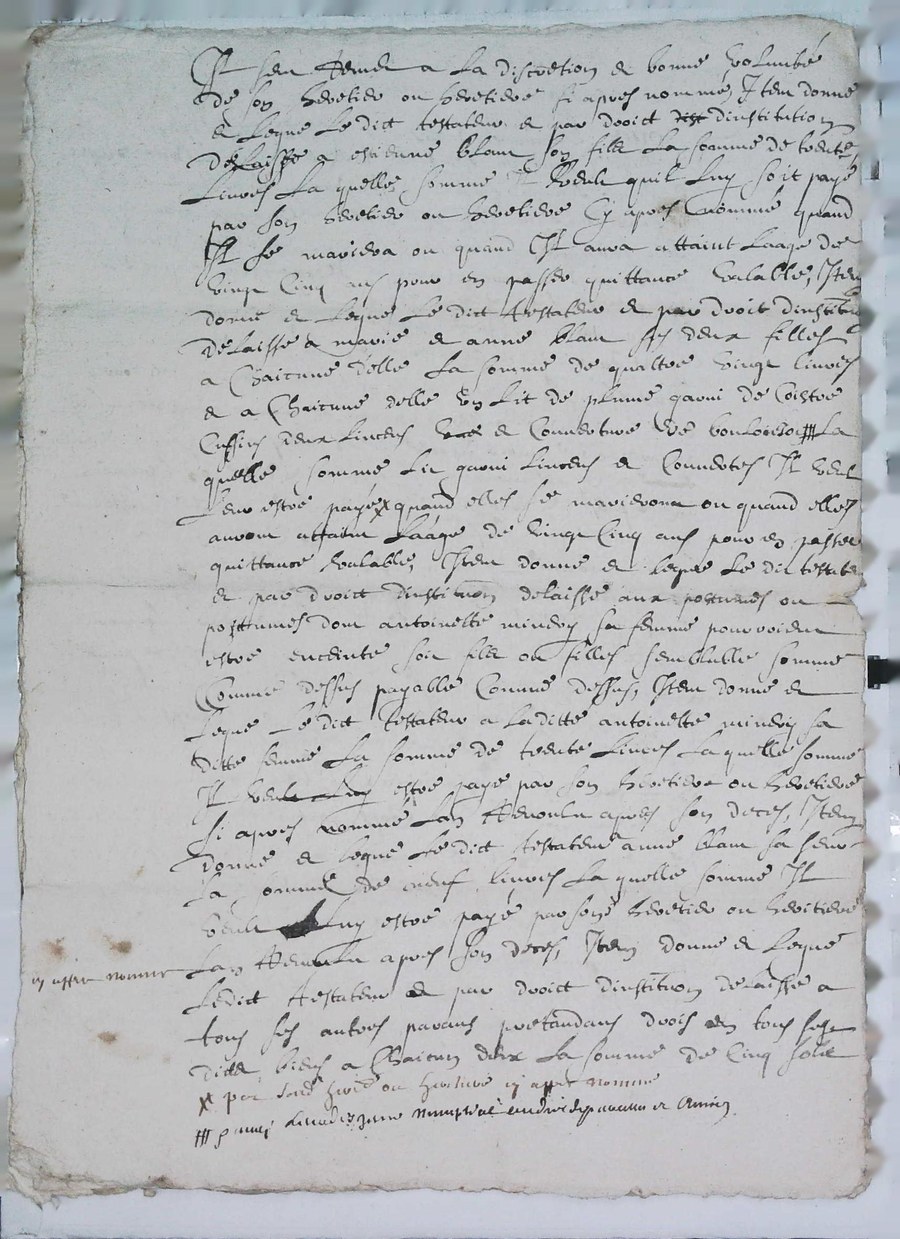 Il sen Remet a la discretion et bonne volunté
de son heretier ou heretiere si apres nommé, Item donne
et legue le dict testateur et par droict dinstitution
delaisse a estienne blanc son filz la somme de trente
Livres La quelle somme Il veult quil luy soit payé
par son heretier ou heretiere Cy apres nommé quand
Il se mariera ou quand Il aura attaint laage de
vingt Cinq ans pour en passer quittance valable, Item
donne et legue le dict testateur et par droit dinstitu
delaisse a marie et anne blanc ses deux filles
a Chaicune delle la somme de quattre vingt livres
et a Chaicune delle un lit de plume garni de Coistre
Cussins deux linceus et Couverture # La
quelle somme lit garni linceus et Couvertes Il veut
leur estre payé x quand elles se marieront ou quand elles
auront attaint laage de vingt Cinq ans pour en passer
quittance valable, Item donne et legue le dit testate
et par droict dinstitution delaisse aux postumes ou
posttumes dont antoinette sa femme pourroient
estre enceinte soit filz ou filles semblable somme
Comme dessus payable Comme dessus, Item donne et
legue le dict testateur a laditte antoinette sa
ditte femme la somme de trente livres laquelle somme
Il veult luy estre payé par son heretier ou heretiere
si apres nommé lan Revoulu apres son deces, Item
donne et legue le dict testateur anne blanc sa seur
la somme de neuf livres la quelle somme Il
veult luy estre payé par son heretier ou heretiere
cy apres nommé
lan Revoulu apres son deces, Item donne et legue
ledict testateur et par droict dinstitution delaisse a
tous ses autres parans pretandans drois en tous ses
dictz biens a Chaicun deux la somme de Cinq solz
x par sond heretier ou heretiere cy apres nommé
#